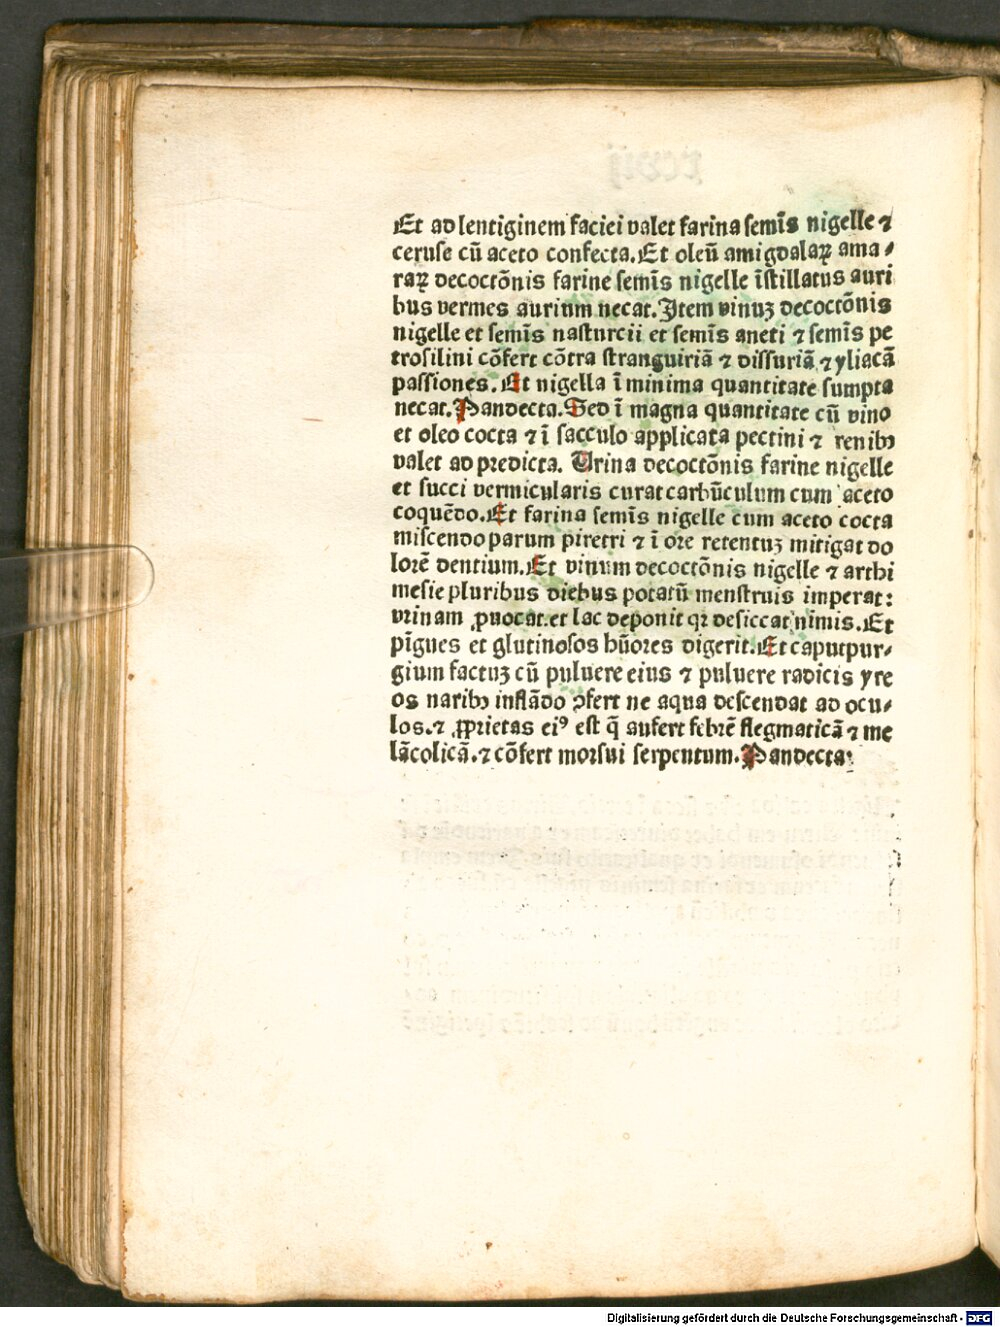 Et ad lentiginem faciei valet farina semīs nigelle ⁊
ceruse cū aceto confecta. Et oleū amigdalaꝝ ama⸗
raꝝ decoctōnis farine semīs nigelle īstillatus auri
bus vermes aurium necat. Item vinuꝫ decoctōnis
nigelle et semīs nasturcii et semīs aneti ⁊ semīs pe
trosilini cōfert cōtra stranguiriā ⁊ dissuriā ⁊ yliacā
passiones. Et nigella ī minima quantitate sumpta
necat. Pandecta. Sed ī magna quantitate cū vino
et oleo cocta ⁊ ī sacculo applicata pectini ⁊ renibꝰ
valet ad predicta. Urina decoctōnis farine nigelle
et succi vermicularis curat carbūculum cum aceto
coquēdo. Et farina semīs nigelle cum aceto cocta
miscendo parum piretri ⁊ ī ore retentuꝫ mitigat do
lorē dentium. Et vinum decoctōnis nigelle ⁊ arthi
mesie pluribus diebus potatū menstruis imperat:
vrinam ꝓuocat. et lac deponit qꝛ desiccat nimis. Et
pīgues et glutinosos hūores digerit. Et caputpur⸗
gium factuꝫ cū puluere eius ⁊ puluere radicis yre
os naribꝰ inflādo ꝯfert ne aqua descendat ad ocu⸗
los. ⁊ ꝓprietas eiꝰ est q̄ aufert febrē flegmaticā ⁊ me
lācolicā. ⁊ cōfert morsui serpentum. Pandecta:
Digitalisierung gefördert durch die Deutsche Forschungsgemeinschaft - DFG